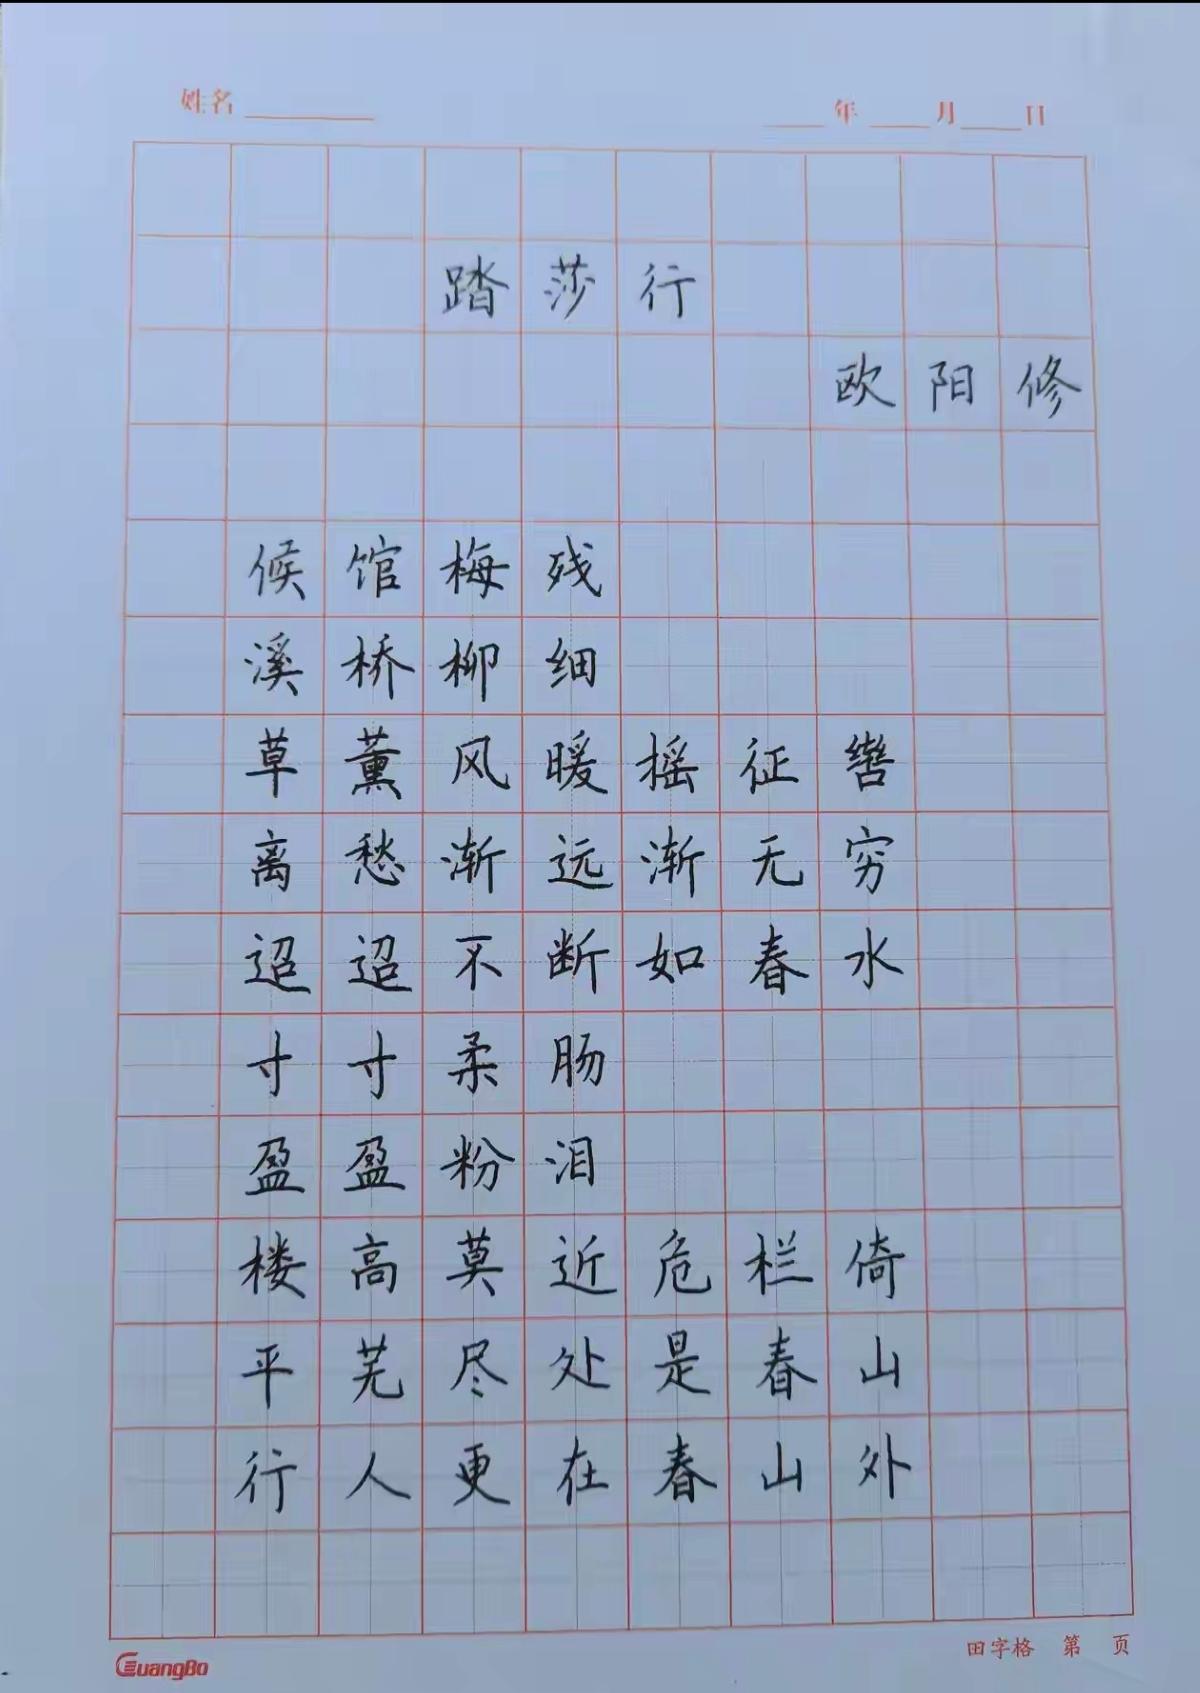 姓名 年 月 日
踏莎行
欧阳修
候馆梅残
溪桥柳细
草薰风暖摇征辔
离愁渐远渐无穷
迢迢不断如春水
寸寸柔肠
盈盈粉泪
楼高莫近危栏倚
平芜尽处是春山
行人更在春山外
GuangBo 田字格 第 页